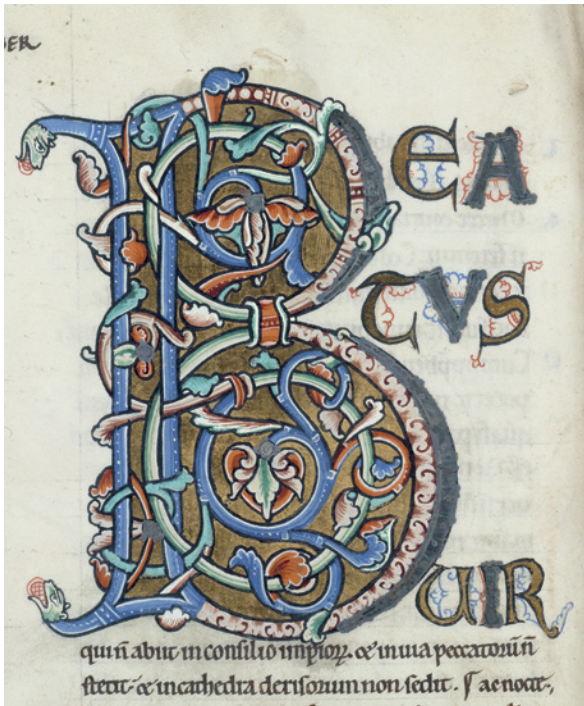 B EA
TVS
UIR
qui n̄ abiit in consilio impioꝝ. & in uia peccatorū n̄
stetit. & in cathedra derisorum non sedit. ac nocte,